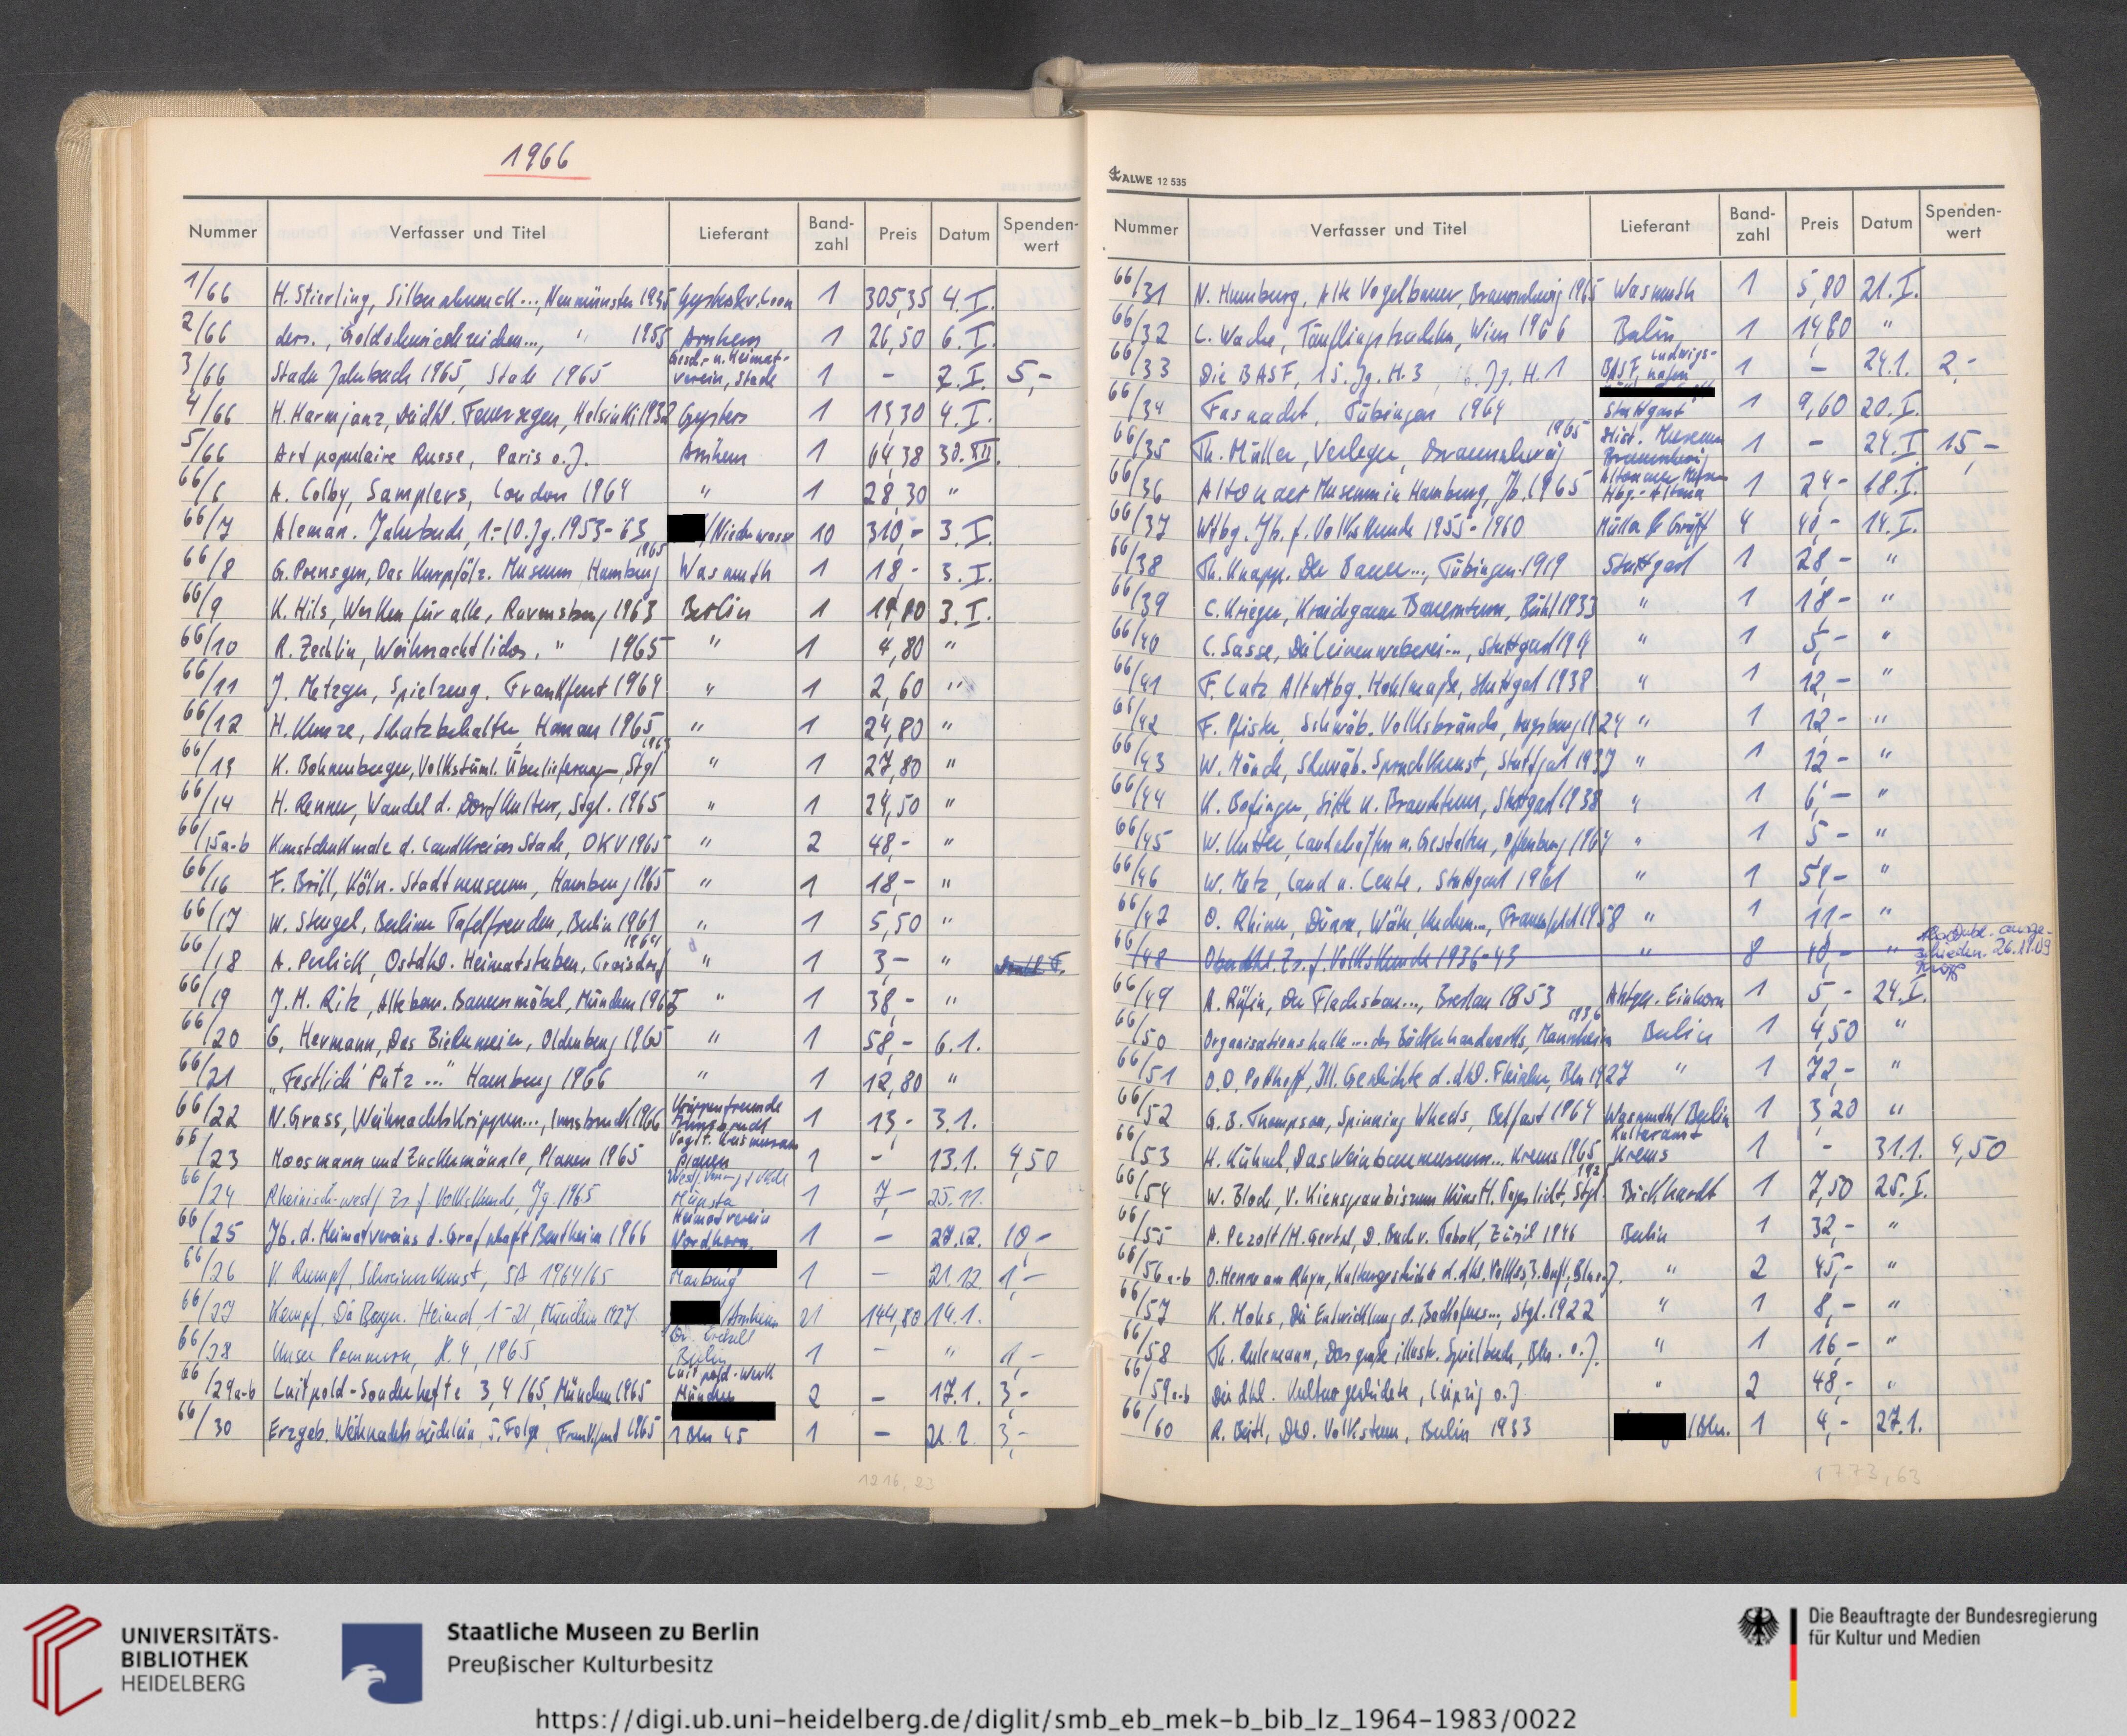 1966
Nummer Verfasser und Titel Lieferant Band- zahl Preis Datum Spenden- wert
1/66 H. Stierling, Silberschmuck..., Neumünster 1935 305,35 4.I.
2/66 ders., Goldschmiedezeichen..., " 1955 Arnhem 1 26,50 6.I.
3/66 Stader Jahrbuch 1965, Stade 1965 Gesch.- u. Heimat- verein, Stade 1 - 7.I. 5,-
4/66 H. Harmjanz, Dtschl. Feuersegen, Helsinki 1932 Gysbers 1 13,30 4.I.
5/66 Art populaire Russe, Paris o.J. Arnhem 1 64,38 30.XII.
66/6 A. Colby, Samplers, London 1964 " 1 28,30 "
66/7 Aleman. Jahrbuch, 1.-10.Jg. 1953-63 10 310,- 3.I.
66/8 G. Poensgen, Das Kurpfälz. Museum Hamburg 1965 Wasmuth 1 18,- 3.I.
66/9 K. Hils, Werken für alle, Ravensburg 1963 Berlin 1 14,80 3.I.
66/10 R. Zechlin, Weihnachtliches, " 1965 " 1 4,80 "
66/11 J. Metzger, Spielzeug, Frankfurt 1964 " 1 2,60 "
66/12 H. Kunze, Schatzbehalter, Hanau 1965 " 1 24,80 "
66/13 K. Bohnenberger, Volkstüml. Überlieferungen, Stgt " 1 27,80 "
66/14 H. Renner, Wandel d. Dorfkultur, Stgt. 1965 " 1 24,50 "
66/15a-b Kunstdenkmale d. Landkreises Stade, DKV 1965 " 2 48,- "
66/16 F. Brill, Köln. Stadtmuseum, Hamburg 1965 " 1 18,- "
66/17 W. Stengel, Berliner Tafelfreuden, Berlin 1961 " 1 5,50 "
66/18 A. Perlick, Ostdtl. Heimatstuben, Troisdorf 1964 " 1 3,- "
66/19 J.M. Ritz, Alte bem. Bauernmöbel, München 1965 " 1 38,- "
66/20 G. Hermann, Das Biedermeier, Oldenburg 1965 " 1 58,- 6.1.
66/21 "Festlich Putz..." Hamburg 1966 " 1 12,80 "
66/22 N. Grass, Weihnachtskrippen..., Innsbruck 1966 Krippenfreunde Innsbruck 1 13,- 3.1.
66/23 Moosmann und Zuckermännle, Plauen 1965 Vogtl. Kreismuseum Plauen 1 - 13.1. 4,50
66/24 Rheinisch-westf. Zs. f. Volkskunde, Jg 1965 Münster 1 7,- 25.11.
66/25 Jb. d. Heimatvereins d. Grafschaft Bentheim 1966 Heimatverein Nordhorn 1 - 27.12. 10,-
66/26 V. Rumpf, Schreinerkunst, SA 1964/65 Marburg 1 - 21.12. 1,-
66/27 Kempf, Die Bayer. Heimat, 1-21, München 1927 /Arnheim 21 144,80 14.1.
66/28 Unser Pommern, H. 4, 1965 Berlin 1 - " 1,-
66/29a-b Luitpold-Sonderhefte 3,4/65, München 1965 Luitpold-Werk München 2 - 17.1. 3,-
66/30 Erzgeb. Weihnachtsbüchlein, 5. Folge, Frankfurt 1965 1 Bln 45 1 - 21.2. 3,-
1216,23
ALWE 12 535
Nummer Verfasser und Titel Lieferant Band- zahl Preis Datum Spenden- wert
66/31 N. Humburg, Alte Vogelbauer, Braunschweig 1965 Wasmuth 1 5,80 21.I.
66/32 C. Wache, Täuflingstrachten, Wien 1966 Berlin 1 14,80 "
66/33 Die BASF, 15. Jg. H. 3, Jg. H. 1 BASF, Ludwigs- hafen 1 - 24.1. 2,-
66/34 Fasnacht, Tübingen 1964 Stuttgart 1 9,60 20.I.
66/35 Th. Müller, Verleger, Braunschweig 1965 Hist. Museum Braunschweig 1 - 24.I 15,-
66/36 Altonaer Museum in Hamburg, Jb. 1965 Altonaer Museum Hbg.-Altona 1 24,- 18.I.
66/37 Wttbg. Jb. f. Volkskunde 1955-1960 Müller & Gräff 4 40,- 14.I.
66/38 Th. Knapp, Der Bauer..., Tübingen 1919 Stuttgart 1 28,- "
66/39 C. Krieger, Kraichgauer Bauerntum, Bühl 1933 " 1 18,- "
66/40 C. Sasse, Die Leinenweberei..., Stuttgart " 1 5,- "
66/41 F. Lutz, Altwttbg. Hohlmaße, Stuttgart 1938 " 1 12,- "
66/42 F. Pfister, Schwäb. Volksbräuche, Augsburg 1924 " 1 12,- "
66/43 W. Mönch, Schwäb. Spruchkunst, Stuttgart 1937 " 1 12,- "
66/44 K. Bofinger, Sitte u. Brauchtum, Stuttgart 1938 " 1 6,- "
66/45 W. Kutter, Landschaften u. Gestalten, Offenburg 1964 " 1 5,- "
66/46 W. Metz, Land u. Leute, Stuttgart 1961 " 1 59,- "
66/47 O. Rhiner, Dünne, Wähe, Kuchen..., Frauenfeld 1958 " 1 11,- "
66/48 Oberdtl. Zs. f. Volkskunde 1936-43 " 8 40,- " ausge- schieden. 26.11.09
66/49 A. Rüfin, Der Flachsbau..., Breslau 1853 Antqu. Einhorn 1 5,- 24.I.
66/50 Organisationshalle... des Bäckerhandwerks, Mannheim 1936 Berlin 1 4,50 "
66/51 O.D. Potthoff, Ill. Geschichte d. dtl. Fleischer, Bln 1927 " 1 72,- "
66/52 G.B. Thompson, Spinning Wheels, Belfast 1964 Wasmuth/Berlin 1 3,20 "
66/53 H. Kühnel, Das Weinbaumuseum... Krems 1965 Kulturamt Krems 1 - 31.1. 4,50
66/54 W. Bloch, V. Kienspan bis zum künstl. Tageslicht, Stgt. Bickhardt 1 7,50 25.I.
66/55 A. Pezolt/M. Gertsl, D. Buch v. Tabak, Zürich 1946 Berlin 1 32,- "
66/56a-b O. Henne am Rhyn, Kulturgeschichte d. dtl. Volkes, 3. Aufl., Bln o.J. " 2 45,- "
66/57 K. Mohs, Die Entwicklung d. Backofens..., Stgt. 1922 " 1 8,- "
66/58 Th. Rulemann, Das große illustr. Spielbuch, Bln. o.J. " 1 16,- "
66/59a-b Die dtl. Kulturgeschichte, Leipzig o.J " 2 48,- "
66/60 R. Beitl, Dtl. Volkstum, Berlin 1933 /Bln. 1 4,- 27.1.
1773,63
UNIVERSITÄTS-
BIBLIOTHEK
HEIDELBERG
Staatliche Museen zu Berlin
Preußischer Kulturbesitz
Die Beauftragte der Bundesregierung
für Kultur und Medien
https://digi.ub.uni-heidelberg.de/diglit/smb_eb_mek-b_bib_lz_1964-1983/0022